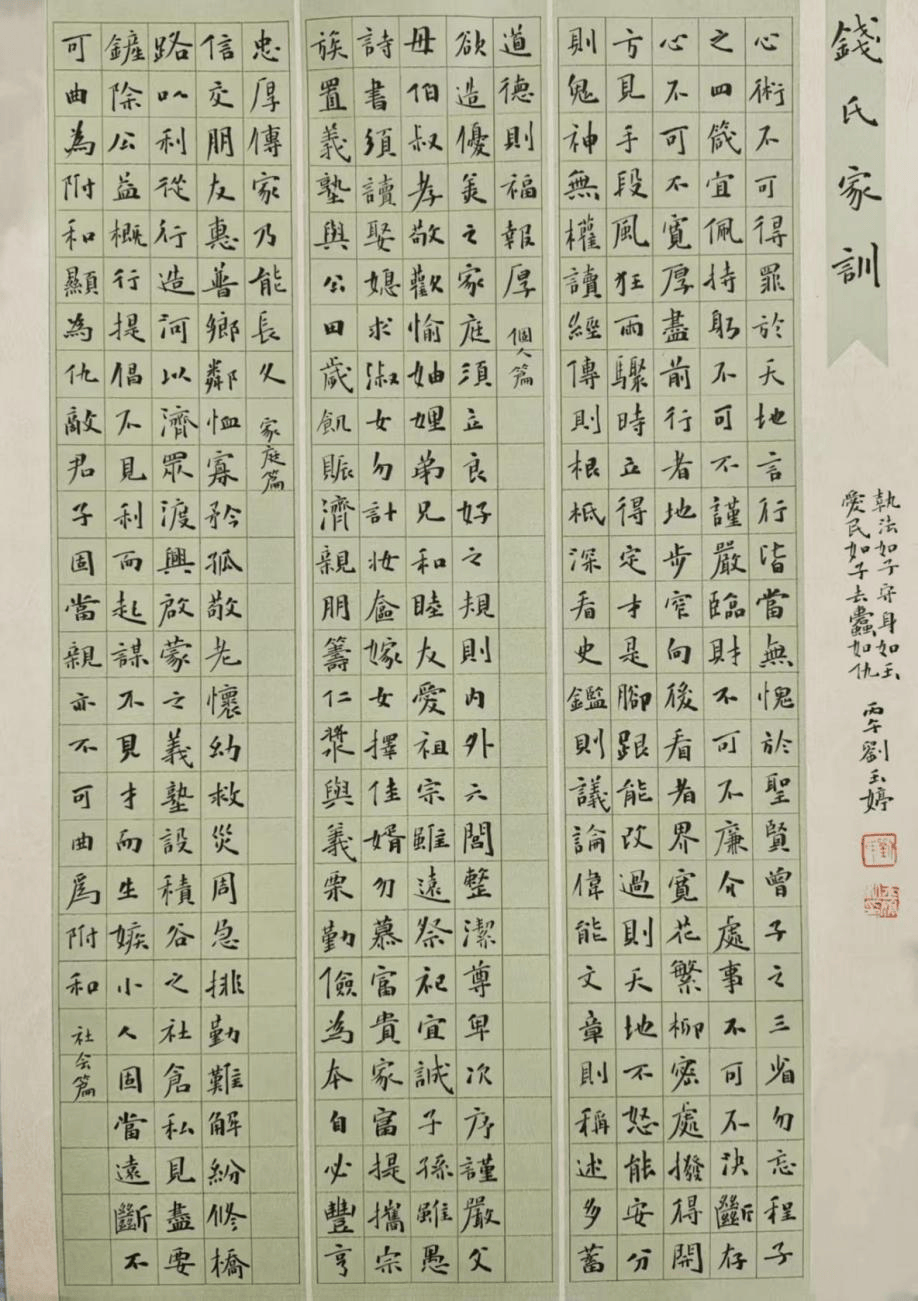 錢氏家訓
心術不可得罪於天地言行皆當無愧於聖賢曾子之三省勿忘程子
之四箴宜佩持躬不可不謹嚴臨財不可不廉介處事不可不決斷存
心不可不寬厚盡前行者地步窄向後看者界寬花繁柳密處撥得開
方見手段風狂雨驟時立得定才是腳跟能改過則天地不怒能安分
則鬼神無權讀經傳則根柢深看史鑑則議論偉能文章則稱述多蓄
道德則福報厚 個人篇
欲造優美之家庭須立良好之規則內外六閭整潔尊卑次序謹嚴父
母伯叔孝敬歡愉妯娌弟兄和睦友愛祖宗雖遠祭祀宜誠子孫雖愚
詩書須讀娶媳求淑女勿計妝奩嫁女擇佳婿勿慕富貴家富提攜宗
族置義塾與公田歲飢賑濟親朋籌仁漿與義粟勤儉為本自必豐亨
忠厚傳家乃能長久 家庭篇
信交朋友惠普鄉鄰恤寡矜孤敬老懷幼救災周急排勤難解紛修橋
路以利從行造河以濟眾渡興啟蒙之義塾設積谷之社倉私見盡要
鏟除公益概行提倡不見利而起謀不見才而生嫉小人固當遠斷不
可曲為附和顯為仇敵君子固當親亦不可曲為附和 社会篇
執法如子守身如玉
愛民如子去蠹如仇 丙午劉玉婷